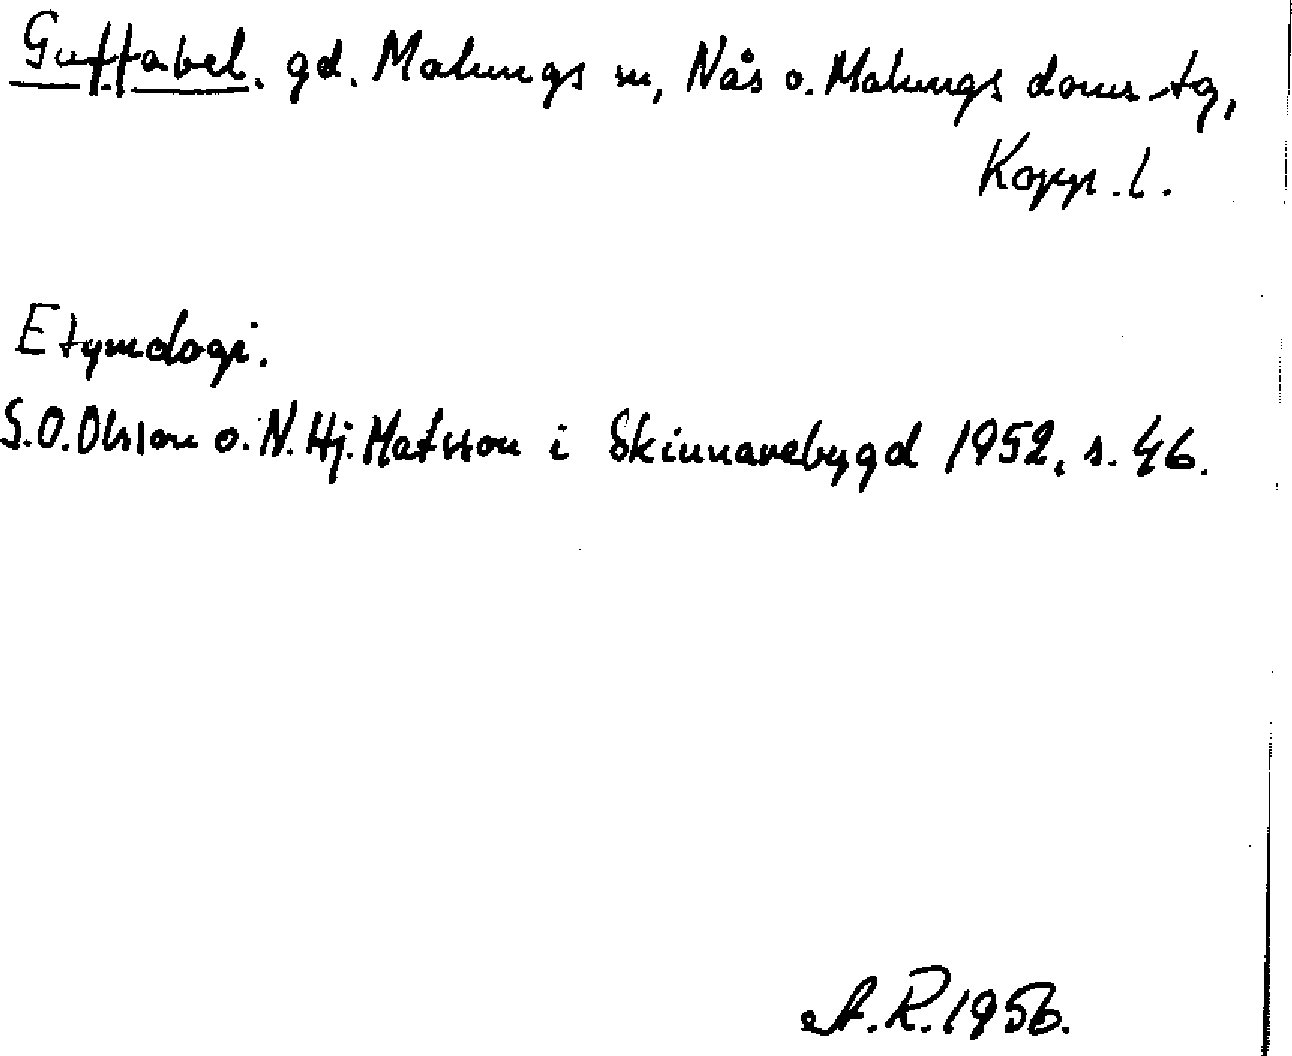 Guttabel. gd. Malungs sn, Nås o. Malungs doms tg,
Kopp. l.
Etymologi.
S.O. Olsson o. N. Hj. Matsson i Skinnarebygd 1952, s. 46.
A.R. 1956.